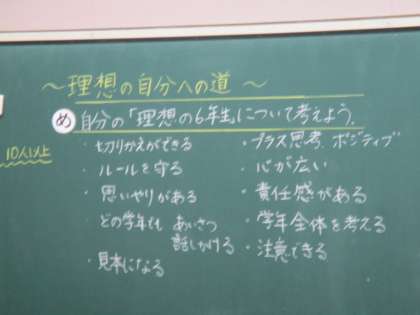 ～理想の自分への道～
め 自分の「理想の6年生」について考えよう。
10人以上
・切りかえができる
・ルールを守る
・思いやりがある
・どの学年でも あいさつ
話しかける
・見本になる
・プラス思考、ポジティブ
・心が広い
・責任感がある
・学年全体を考える
・注意できる